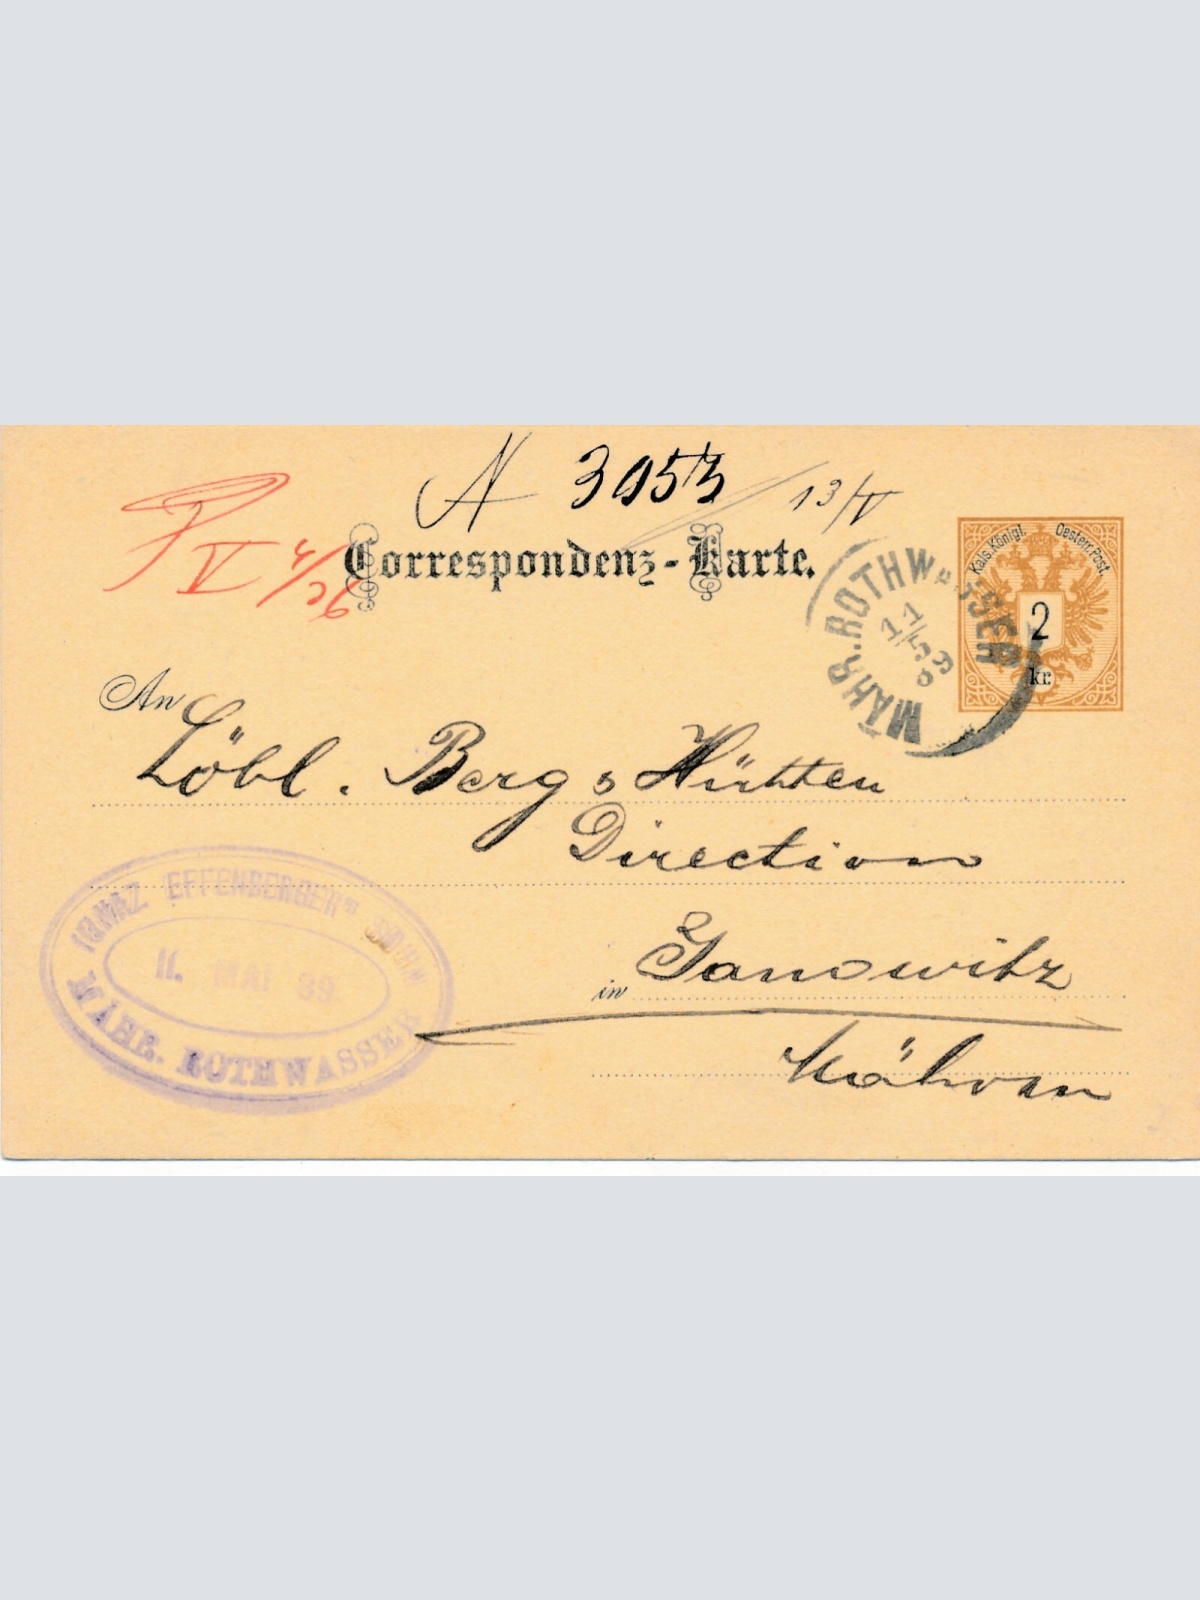 N 3053 13/V
V 4/
Correspondenz-Karte.
Kais. Königl. Oesterr. Post.
2
kr.
MÄHR. ROTHWASSER
11/5
89
An Löbl. Berg & Hütten
Direction
in Janowitz
Mähren
IGNAZ EFFENBERGER'S SÖHNE
11. MAI 89
MÄHR. ROTHWASSER